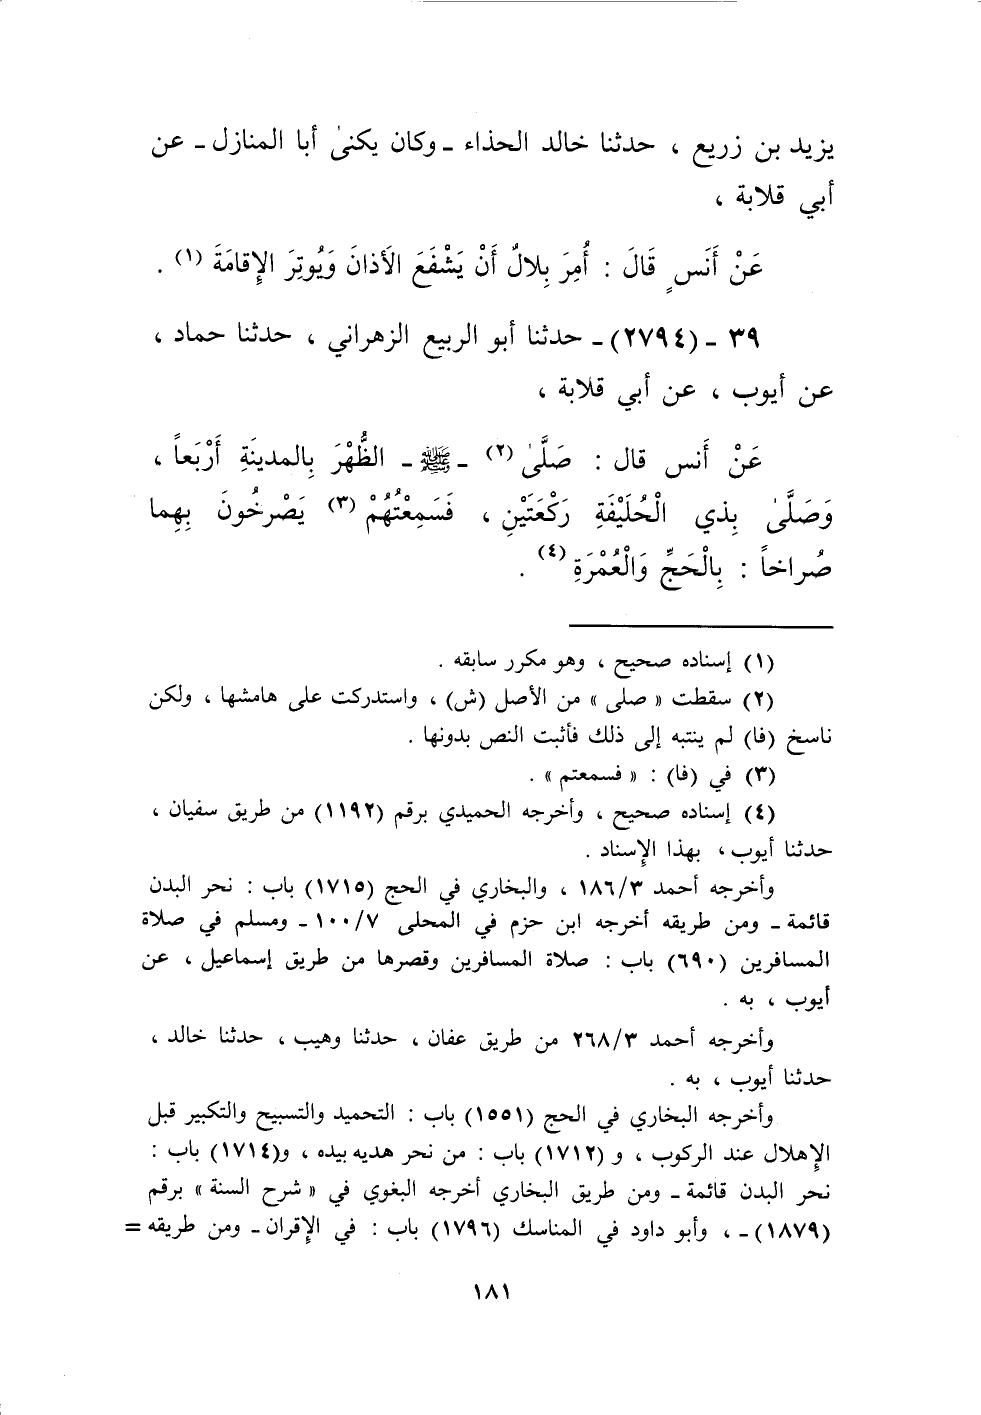 يزيد بن زريع ، حدثنا خالد الحذاء ـ وكان يكنىٰ أبا المنازل ـ عن
أبي قلابة ،
عَنْ أَنَسٍ قَالَ : أُمِرَ بِلالٌ أَنْ يَشْفَعَ الأَذانَ وَيُوتِرَ الإِقامَةَ (١) .
٣٩ ـ (٢٧٩٤) ـ حدثنا أبو الربيع الزهراني ، حدثنا حماد ،
عن أيوب ، عن أبي قلابة ،
عَنْ أَنس قال : صَلَّىٰ (٢) ـ ﷺ ـ الظُّهْرَ بِالمدينَةِ أَرْبَعاً ،
وَصَلَّىٰ بِذي الْحُلَيْفَةِ رَكْعَتَيْنِ ، فَسَمِعْتُهُمْ (٣) يَصْرخُونَ بِهِما
صُراخاً : بِالْحَجِّ وَالْعُمْرَةِ (٤) .
(١) إسناده صحيح ، وهو مكرر سابقه .
(٢) سقطت « صلى » من الأصل (ش) ، واستدركت على هامشها ، ولكن
ناسخ (فا) لم ينتبه إلى ذلك فأثبت النص بدونها .
(٣) في (فا) : « فسمعتم » .
(٤) إسناده صحيح ، وأخرجه الحميدي برقم (١١٩٢) من طريق سفيان ،
حدثنا أيوب ، بهذا الإسناد .
وأخرجه أحمد ١٨٦/٣ ، والبخاري في الحج (١٧١٥) باب : نحر البدن
قائمة ـ ومن طريقه أخرجه ابن حزم في المحلى ١٠٠/٧ ـ ومسلم في صلاة
المسافرين (٦٩٠) باب : صلاة المسافرين وقصرها من طريق إسماعيل ، عن
أيوب ، به .
وأخرجه أحمد ٢٦٨/٣ من طريق عفان ، حدثنا وهيب ، حدثنا خالد ،
حدثنا أيوب ، به .
وأخرجه البخاري في الحج (١٥٥١) باب : التحميد والتسبيح والتكبير قبل
الإهلال عند الركوب ، و (١٧١٢) باب : من نحر هديه بيده ، و(١٧١٤) باب :
نحر البدن قائمة ـ ومن طريق البخاري أخرجه البغوي في « شرح السنة » برقم
(١٨٧٩) ـ ، وأبو داود في المناسك (١٧٩٦) باب : في الإقران ـ ومن طريقه =
١٨١